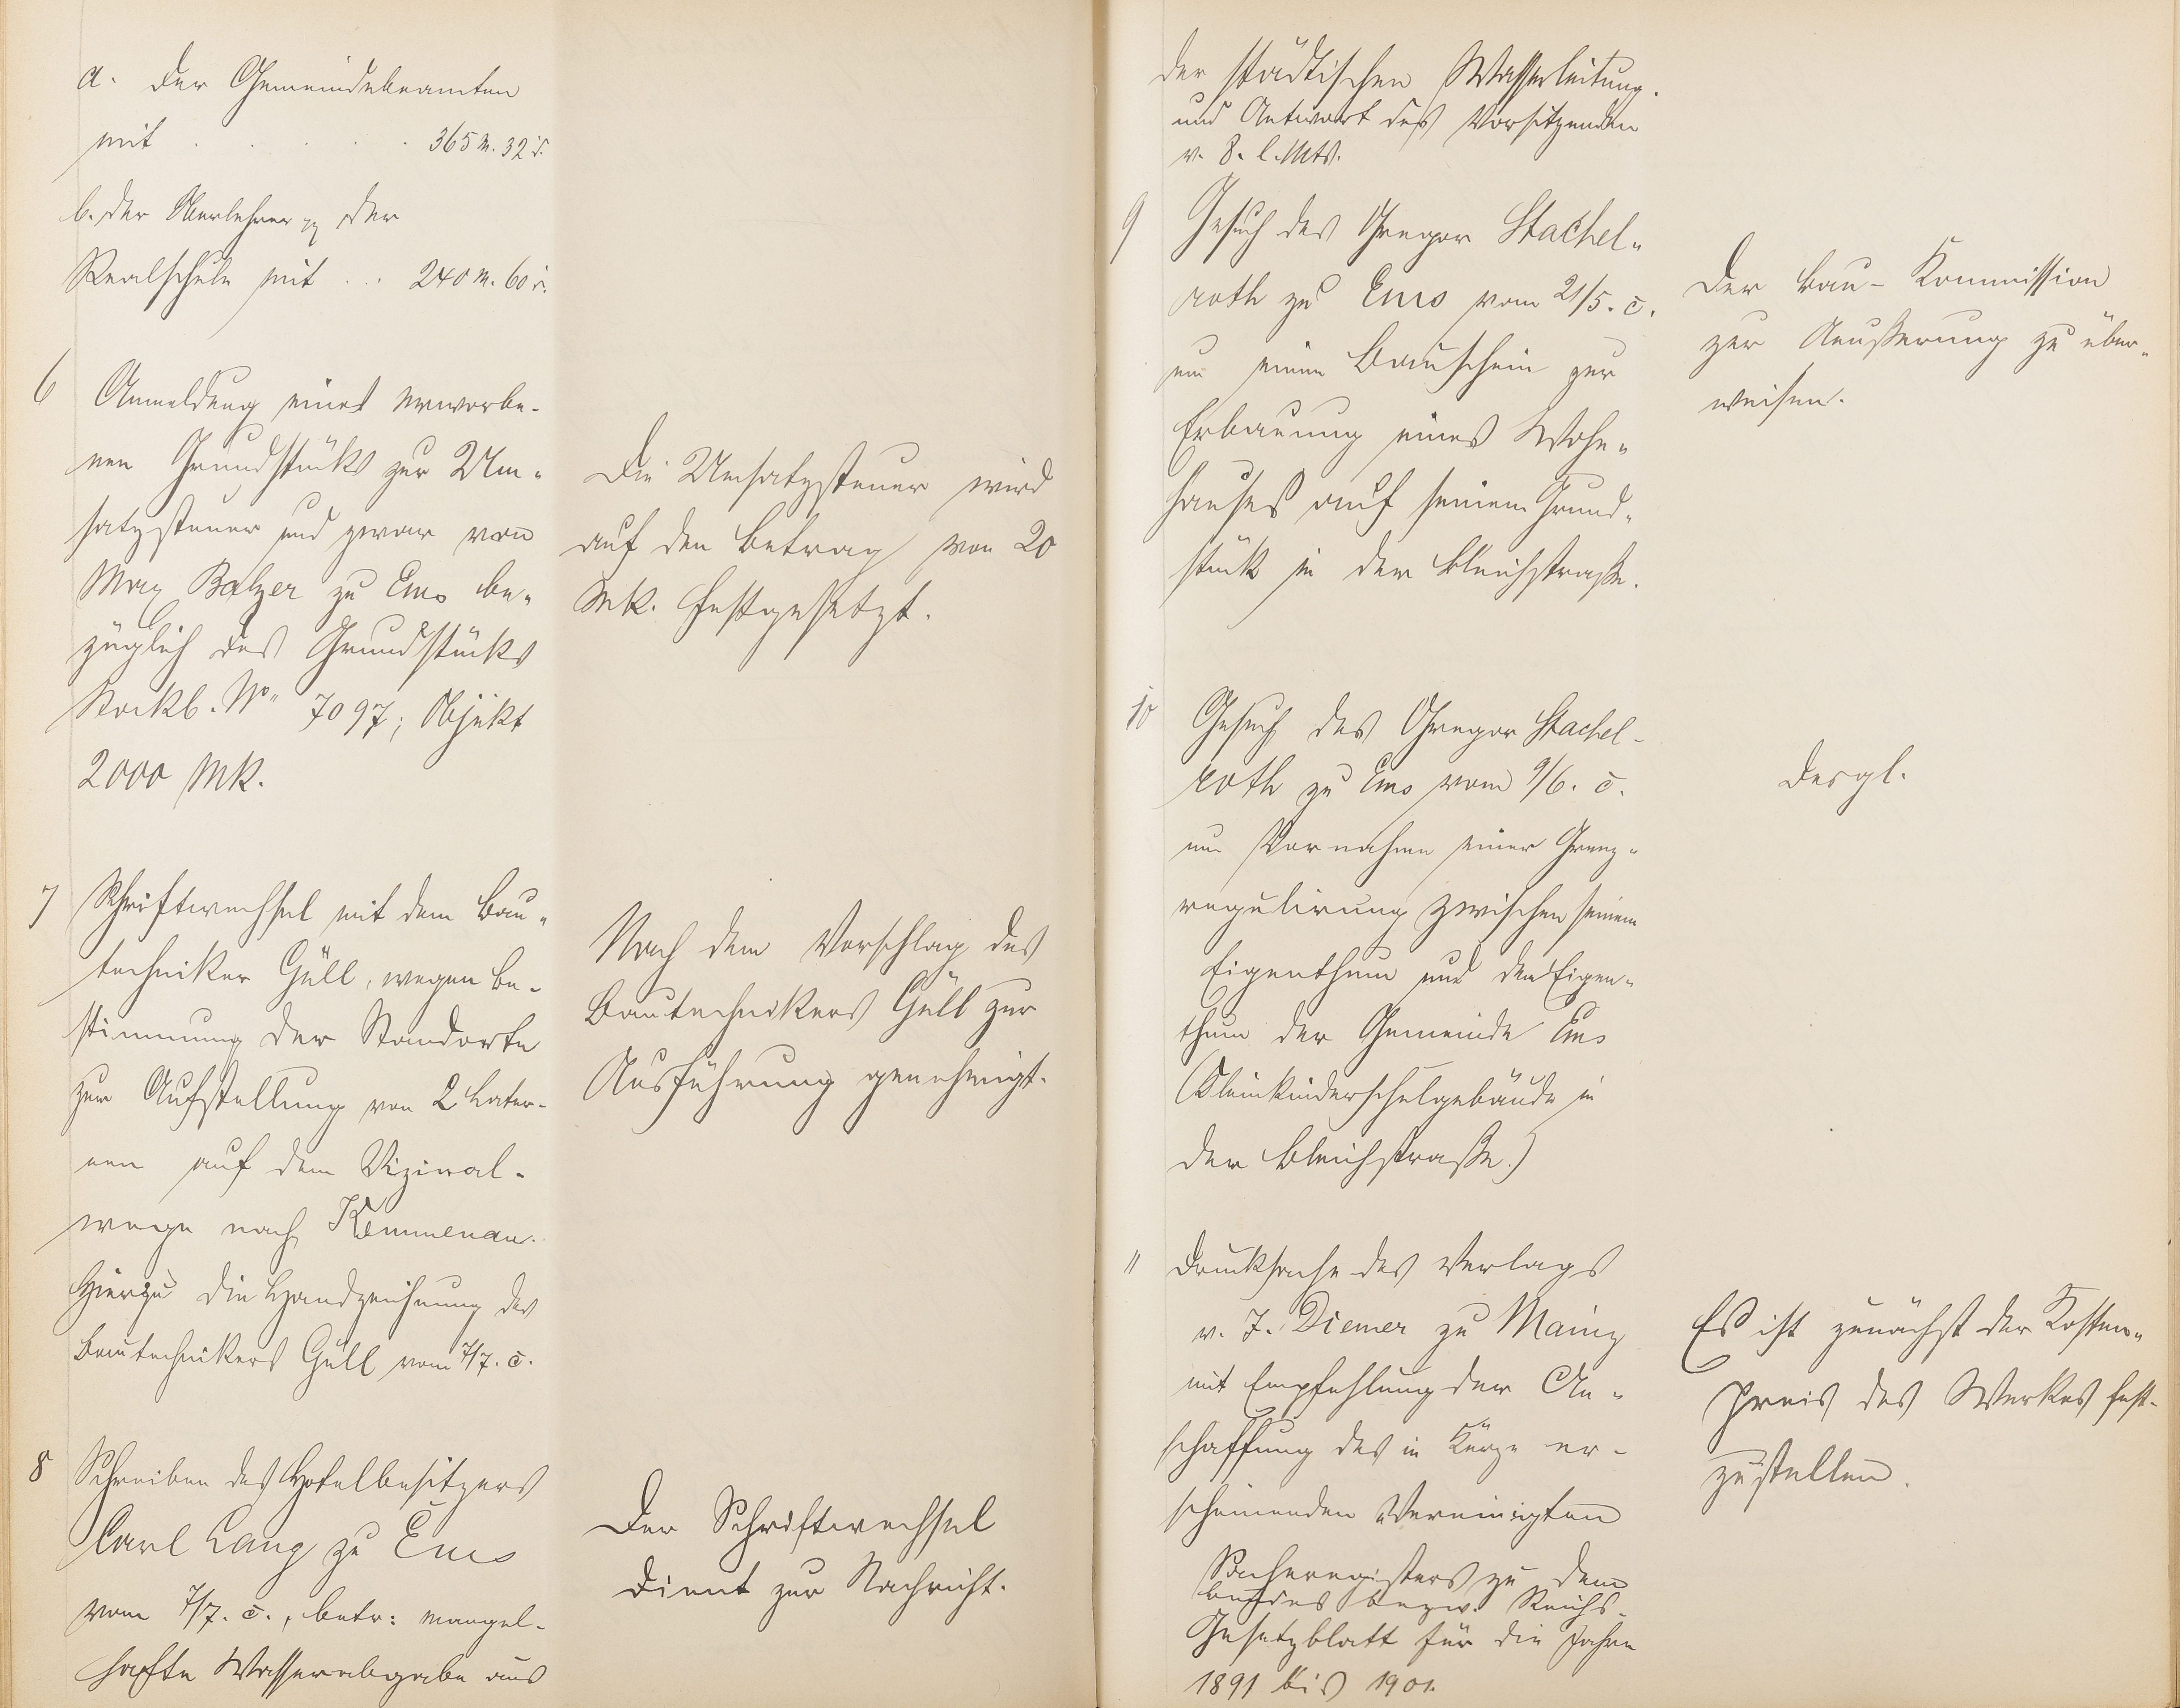 a. der Gemeindebeamten
mit . . . . . 365 M. 32 d.
b. der Oberlehrer pp der
Realschule mit . . . 240 M. 60 d.
6 Anmeldung eines erworbe-
nen Grundstücks zur Um-
satzsteuer und zwar von
Max Balzer zu Ems be-
züglich des Grundstücks
Stockb. No 7097; Objekt
2000 Mk.
Die Umsatzsteuer wird
auf den Betrag von 20
Mk. festgesetzt.
7 Schriftwechsel mit dem Bau-
techniker Güll, wegen Be-
stimmung der Standorte
zur Aufstellung von 2 Later-
nen auf dem Vizinal-
wege nach Kemmenau.
Hierzu die Handzeichnung des
Bautechnikers Güll vom 7/7. c.
Nach dem Vorschlag des
Bautechnikers Güll zur
Ausführung genehmigt.
8 Schreiben des Hotelbesitzers
Carl Lang zu Ems
vom 7/7. c., betr: mangel-
hafte Wasserabgabe aus
Der Schriftwechsel
dient zur Nachricht.
der städtischen Wasserleitung.
und Antwort des Vorsitzenden
v. 8. l. Mts.
9 Gesuch des Gregor Stachel-
roth zu Ems vom 21/5. c.
um einen Bauschein zur
Erbauung eines Wohn-
hauses auf seinem Grund-
stück in der Bleichstraße.
Der Bau-Kommission
zur Aeußerung zu über-
weisen.
10 Gesuch des Gregor Stachel-
roth zu Ems vom 9/6. c.
um Vornahme einer Grenz-
regulirung zwischen seinem
Eigenthum und dem Eigen-
thum der Gemeinde Ems
(Kleinkinderschulgebäude in
der Bleichstraße.)
Desgl.
11 Drucksache des Verlags
v. J. Diemer zu Mainz
mit Empfehlung der An-
schaffung des in Kürze er-
scheinenden Vereinigten
Sachregisters zu dem
Bundes bezw. Reichs-
Gesetzblatt für die Jahre
1891 bis 1901.
Es ist zunächst der Kosten-
preis des Werkes fest-
zustellen.